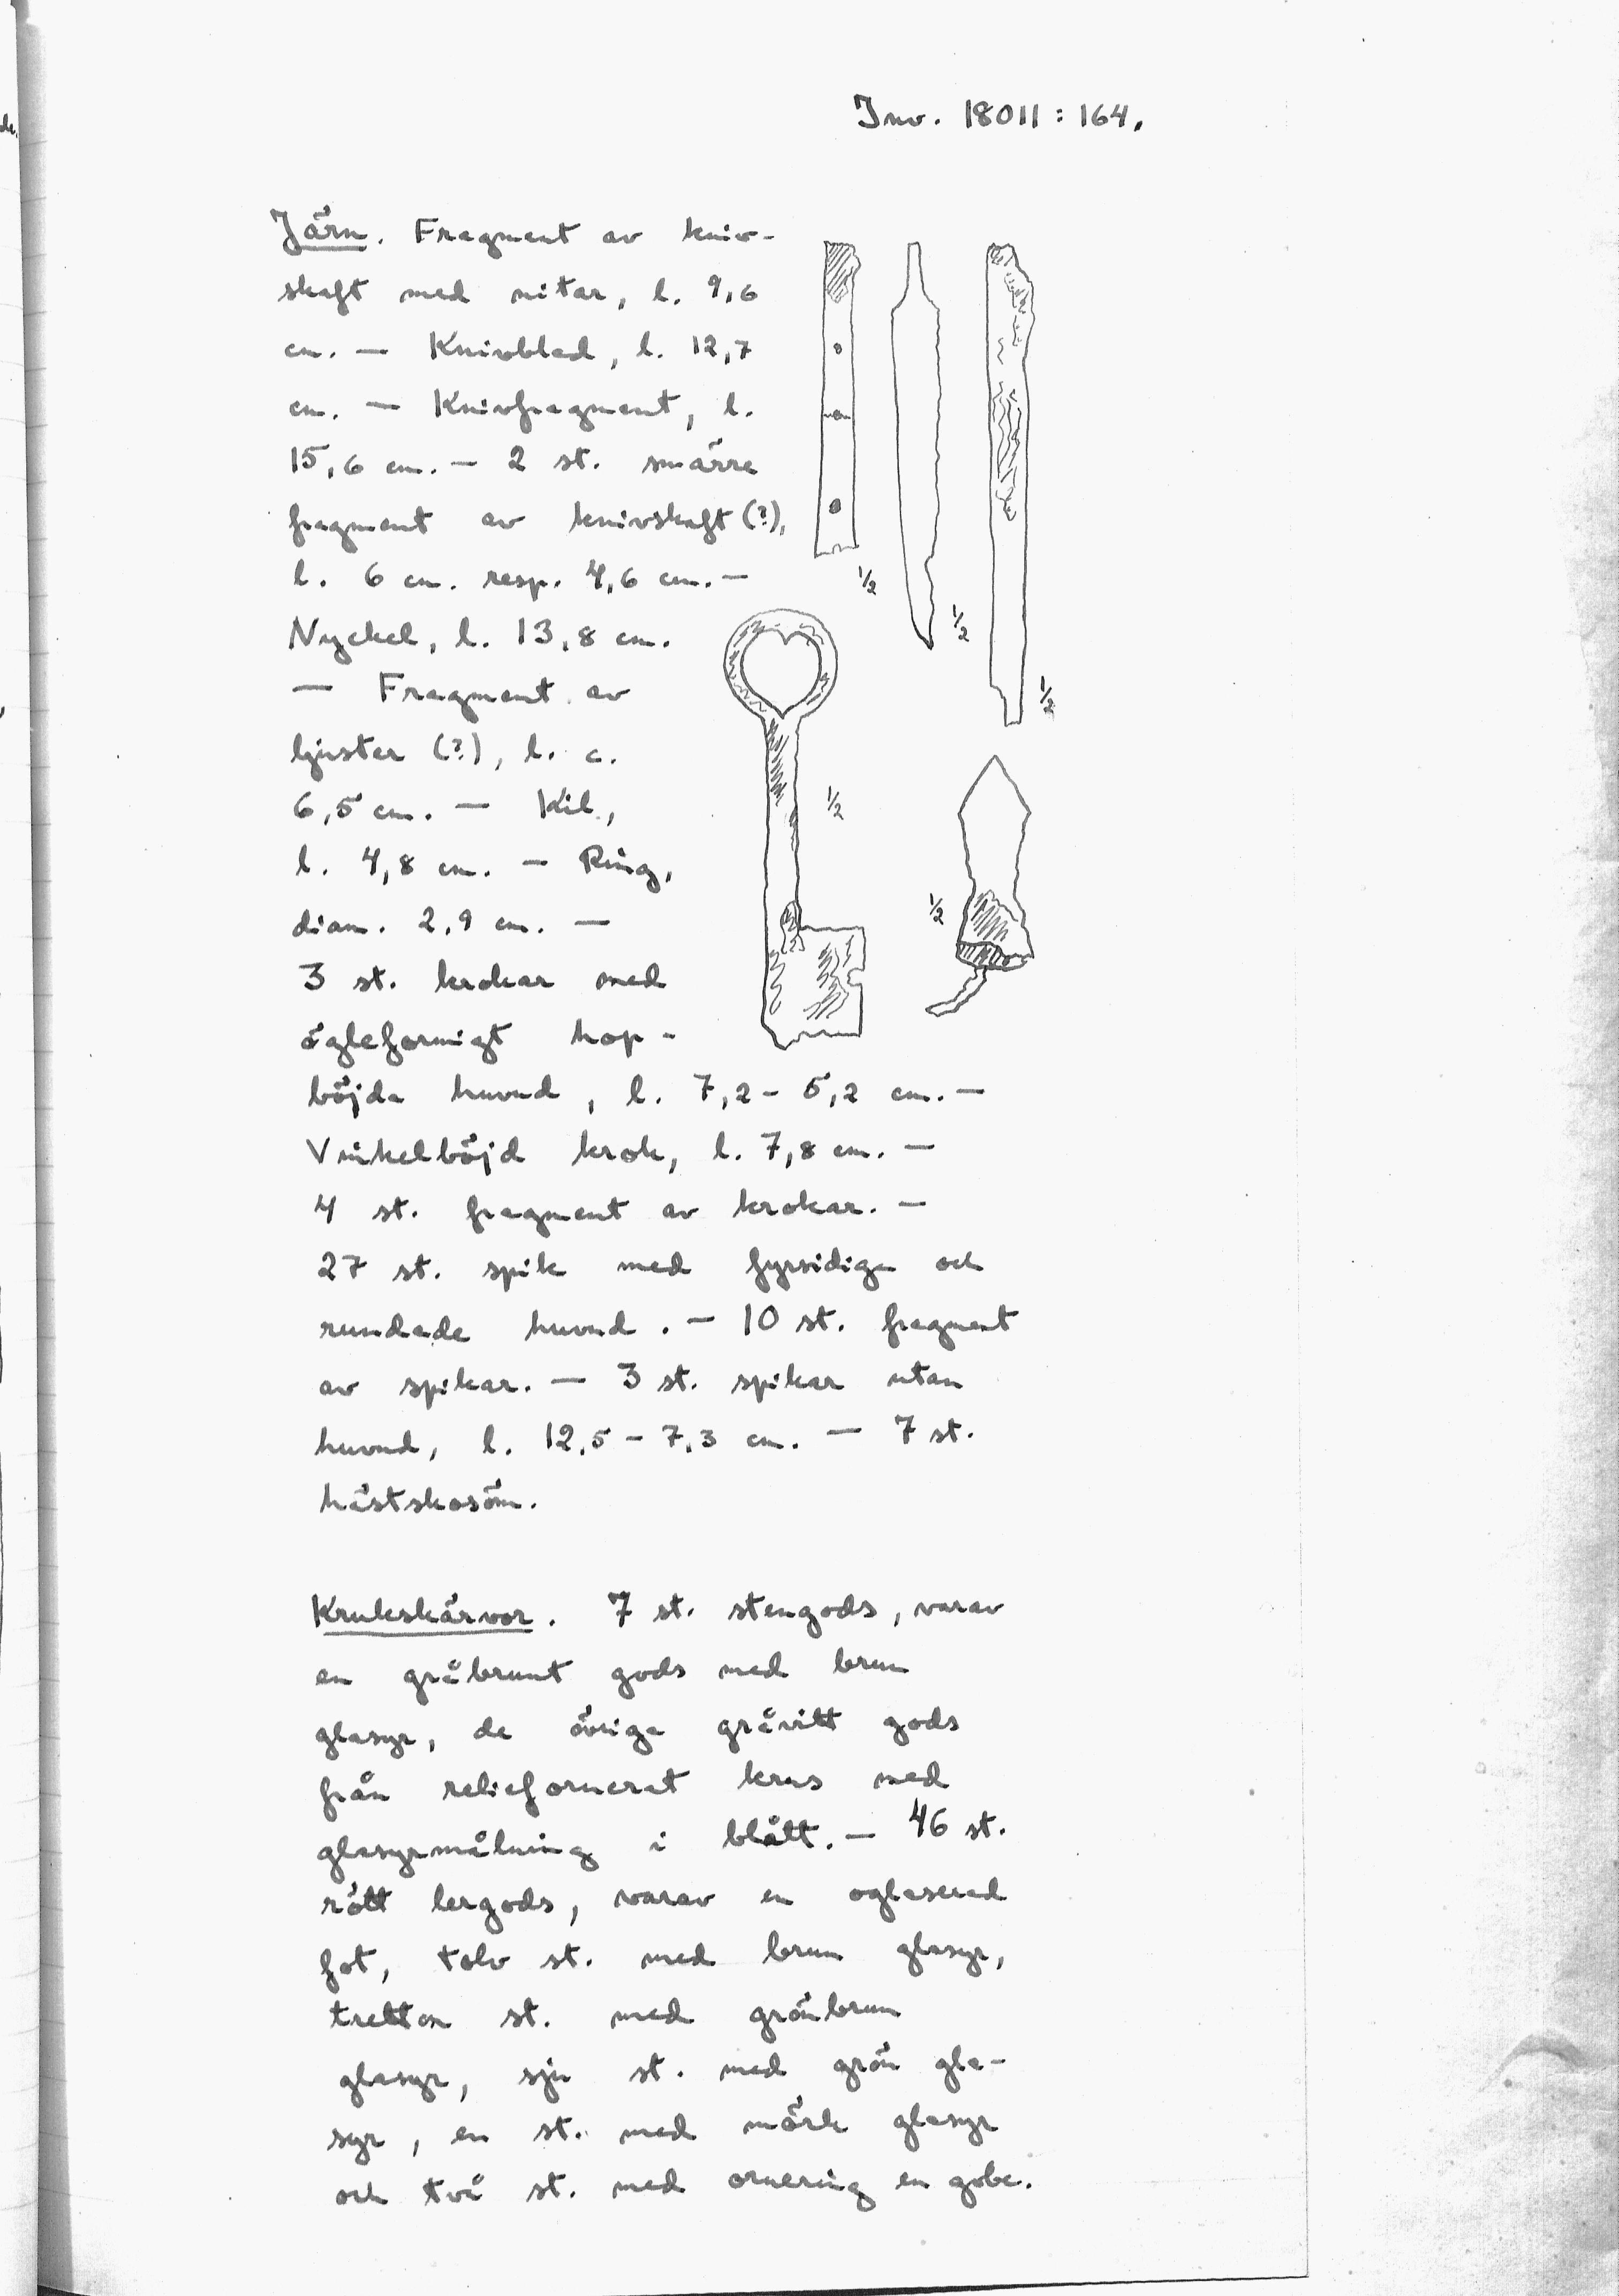 Inv. 18011:164.
Järn. Fragment av kniv-
skaft med nitar, l. 9,6
cm. — Knivblad, l. 12,7
cm. — Knivfragment, l.
15,6 cm. — 2 st. smärre
fragment av knivskaft (?),
l. 6 cm. resp. 4,6 cm. —
Nyckel, l. 13,8 cm.
— Fragment av
ljuster (?), l. c.
6,5 cm. — Kil,
l. 4,8 cm. — Ring,
diam. 2,9 cm. —
3 st. krokar med
ögleformigt hop-
böjda huvud, l. 7,2 - 5,2 cm. —
Vinkelböjd krok, l. 7,8 cm. —
4 st. fragment av krokar. —
27 st. spik med fyrsidiga och
rundade huvud. — 10 st. fragment
av spikar. — 3 st. spikar utan
huvud, l. 12,5 - 7,3 cm. — 7 st.
hästskosöm.
1/2
1/2
1/2
1/2
1/2
Krukskärvor. 7 st. stengods, varav
en gråbrunt gods med brun
glasyr, de övriga gråvitt gods
från reliefornerat krus med
glasyrmålning i blått. — 46 st.
rött lergods, varav en oglaserad
fot, tolv st. med brun glasyr,
tretton st. med grönbrun
glasyr, sju st. med grön gla-
syr, en st. med mörk glasyr
och två st. med ornering en gobe.